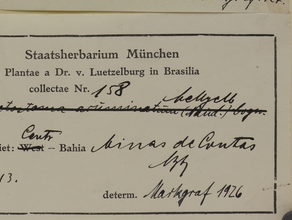 Staatsherbarium München
Plantae a Dr. v. Luetzelburg in Brasilia
collectae Nr. 158
acuminatum
Centr
iet: West – Bahia Minas de Contas
13.
determ. Markgraf 1926